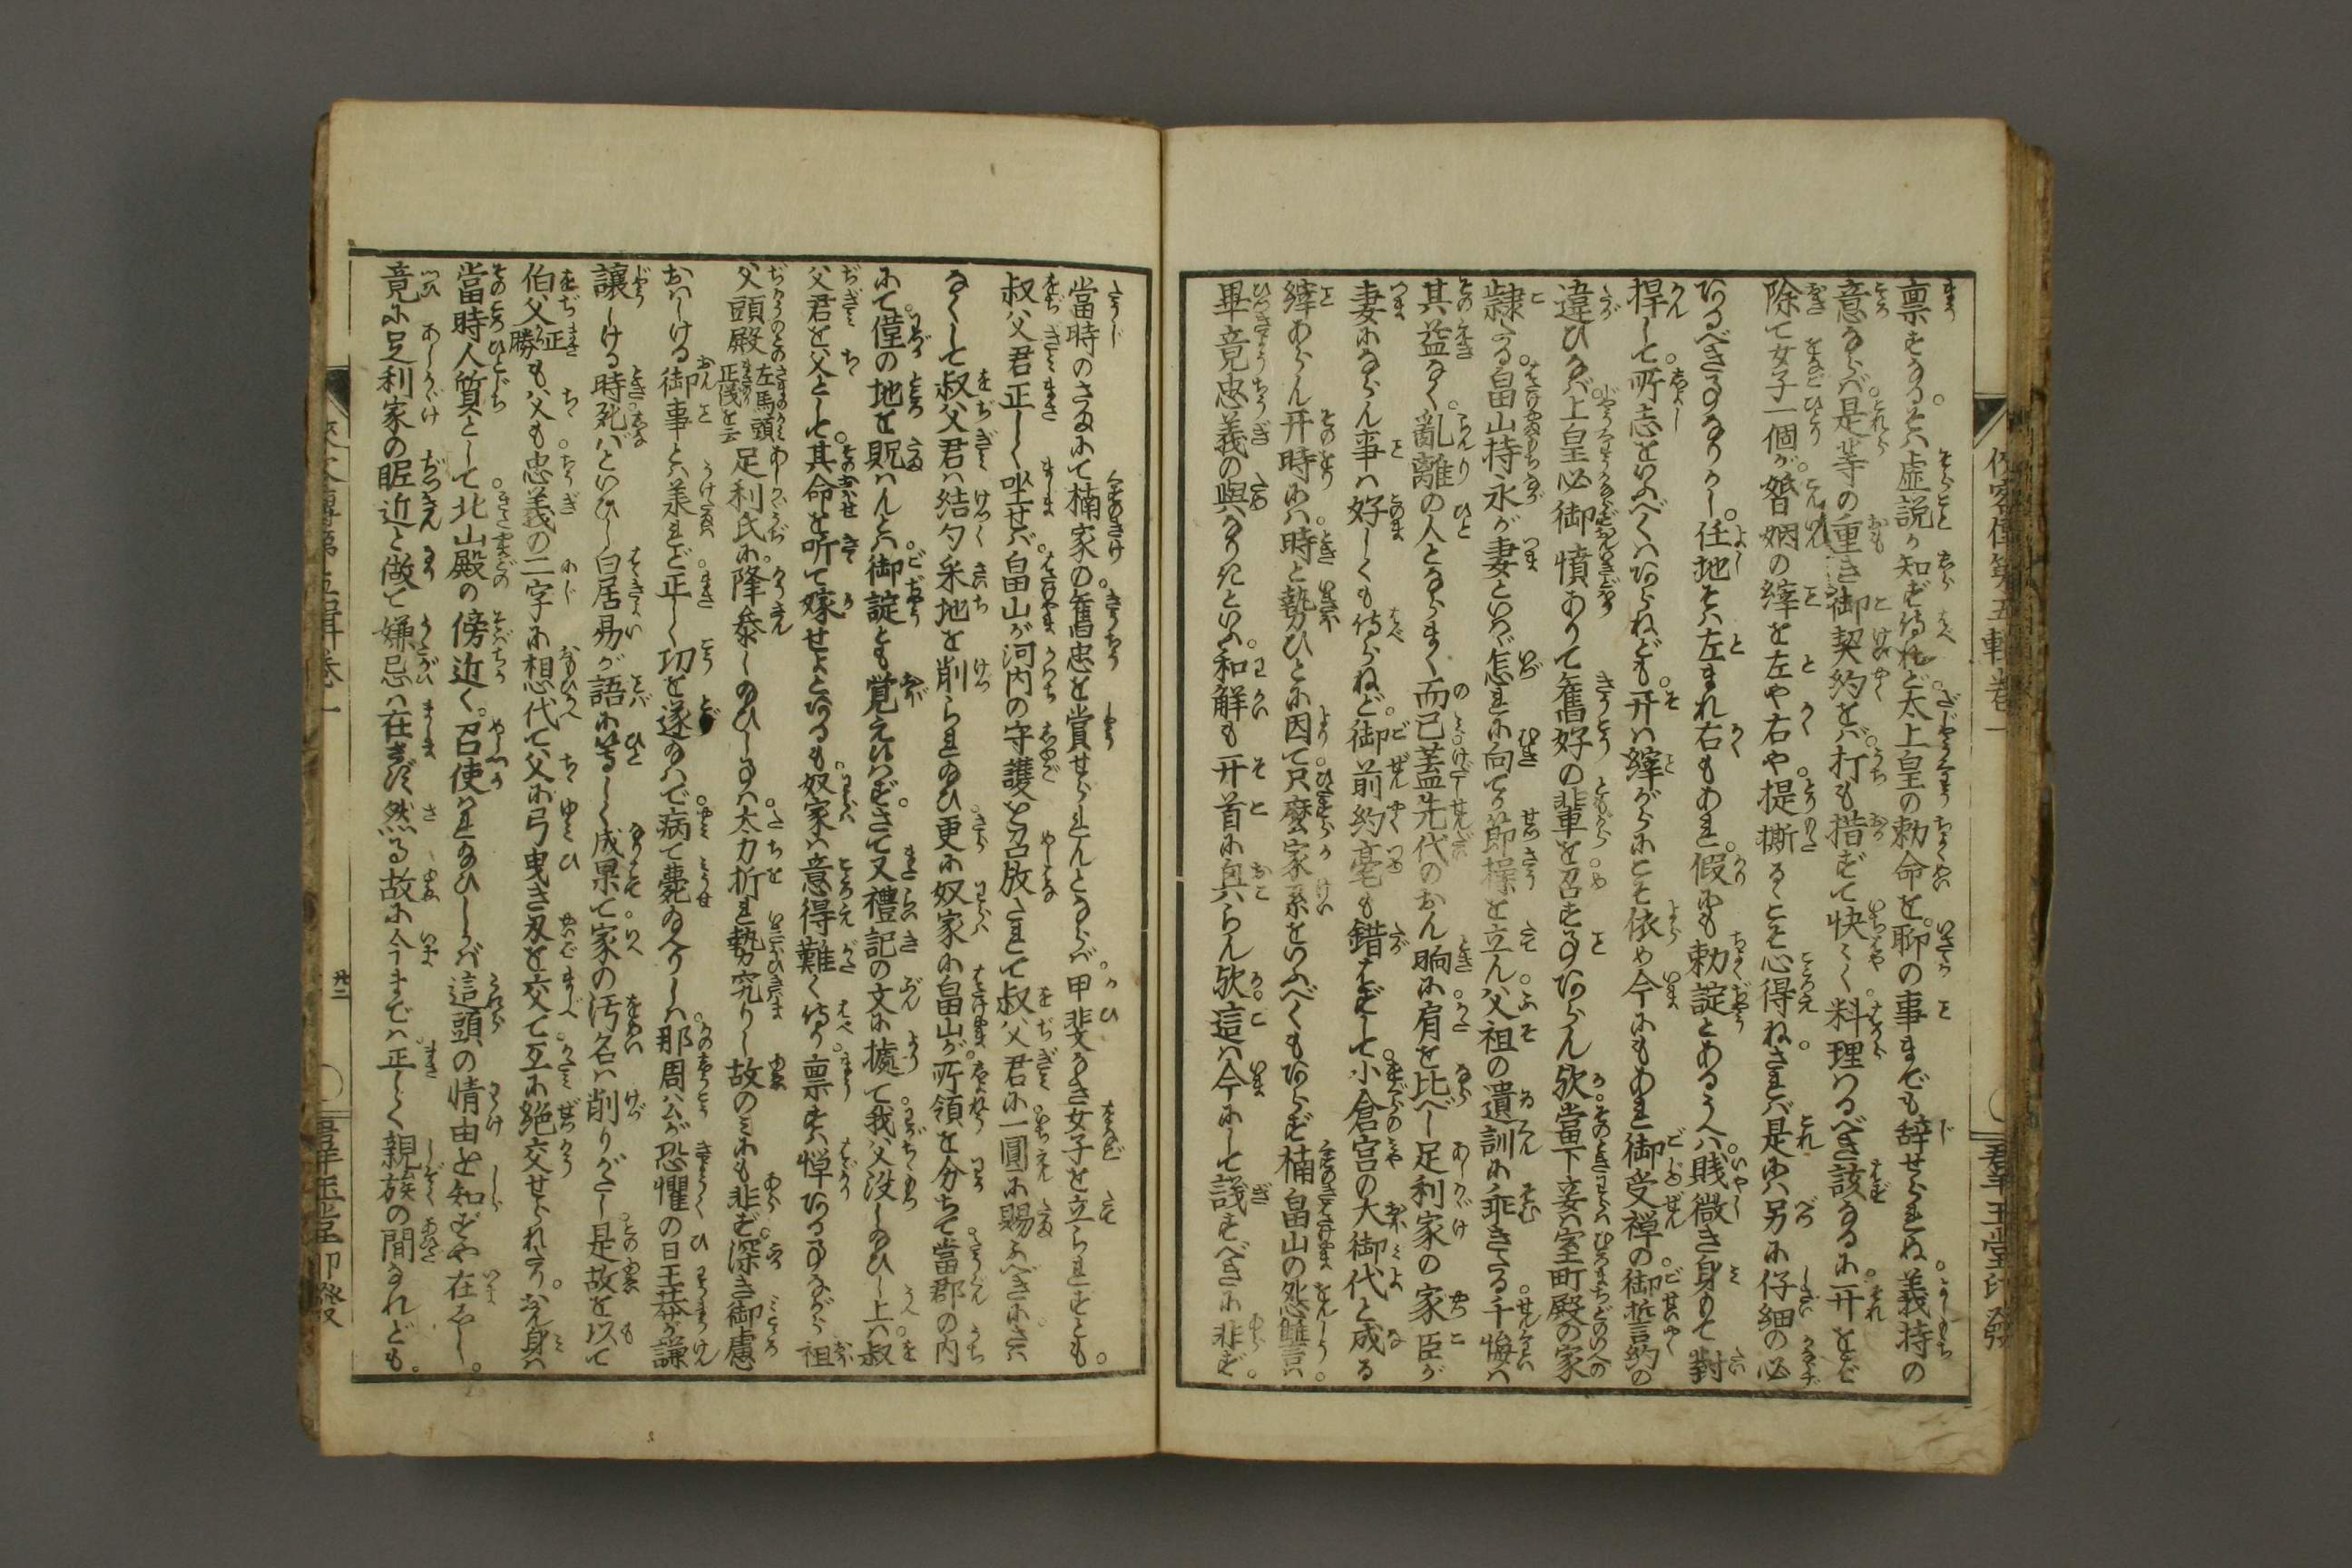 稟すなる。そは虚説か知ず侍れど。太上皇の勅命を。聊の事までも辞せられぬ。義持の
意ならば。是等の重き御契約をば。打も措ずて快く。料理はるべき該なるに。开をば
除て女子一個が。婚姻の縡を左や右や。提撕るこそ心得ね。されば是には另に仔細の必
あるべき事なりかし。任地そは左まれ右もあれ。假にも勅諚とあるうへは。賎微き身もて對
捍して。所志をいふべくはあらねども。开は縡がらにこそ依め今にもあれ御受禅の。御誓約の
違ひなば。上皇必御憤ありて舊好の輩を。召す事あらん欤。當下妾は室町殿の家
隷なる。畠山持永が妻といはゞ。怎に向てか節操を立ん。父祖の遺訓に乖きたる。千悔は
其益なく。亂離の人とならまく而已。蓋先代のおん晌に。肩を比べし足利家の家臣が
妻にならん事は。好しくも侍らねど。御前約毫も錯はずして。小倉宮の大御代と成る
縡あらん开時には。時と勢ひとに因て。只麼家系をいふべくもあらず。楠畠山の怨讐は。
畢竟忠義の與なりきといふ。和解も开首に真へらん欤。這は今にして議すべきに非ず。
當時のさまにて楠家の。舊忠を賞せられんとならば。甲斐なき女子を立られずとも。
叔父君正しく坐せば。畠山が河内の守護を召放されて。叔父君に。一圓に賜ふべきに。さは
なくして叔父君は。結句采地を削られ給ひ。更に奴家に畠山が。所領を分ちて。當郡の内
にて。僅の地を賜はんとは。御諚とも覚え侍はず。さて又禮記の文に據て。我父没し給ひし上は。叔
父君を父として。其命を听て嫁せよとあるも。奴家は意得難く侍り。稟すは憚りある事ながら。祖
父頭殿左馬頭正儀を云足利氏に。降參し給ひし事は。太刀折れ勢ひ究りし故のみにも非ず。深き御慮
おはしける御事とは。承れど。正しく功を遂給はで。病て薨給へりしは。那周公が恐懼の日。王莽が謙
讓しける時。死ばといひし白居易が語に等しく。成果て。家の汚名は削りがたし。是故を以て
伯父正勝も父も。忠義の二字に想代て。父に弓曳き刄を交て。互に絶交せられたり。おん身は
當時人質として。北山殿の傍近く。召使はれ給ひしかば。這頭の情由を知ずや在しけん。
竟に足利家の昵近と做て。嫌忌は在さず。然る故に今までは。正しく親族の間なれども。
俠客傳第五輯卷一
群玉堂印發
俠客傳第五輯卷一
廿二
群玉堂印發